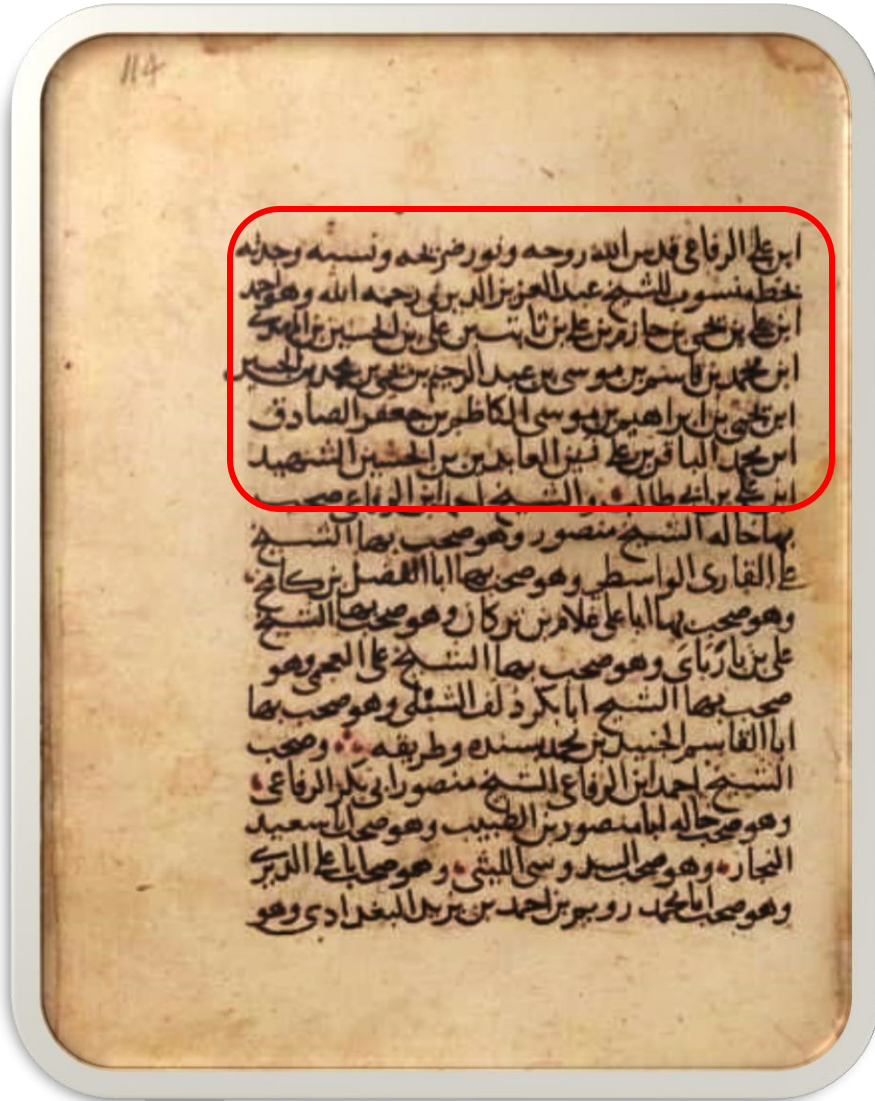 114
ابن علي الرفاعي قدس الله روحه ونور ضريحه ونسبه وجدته
بخط منسوب للشيخ عبد العزيز الديريني رحمه الله وهو احمد
ابن علي بن يحيى بن حازم بن علي بن ثابت بن علي بن الحسين بن المهدي
ابن محمد بن قاسم بن موسى بن عبد الرحيم بن يحيى بن محمد بن الحسين
ابن يحيى بن ابراهيم بن موسى الكاظم بن جعفر الصادق
ابن محمد الباقر بن علي زين العابدين بن الحسين الشهيد
ابن علي بن ابي طالب والشيخ احمد ابن الرفاعي صحب
بها خاله الشيخ منصور وهو صحب بها الشيخ
علي القارى الواسطي وهو صحب بها ابا الفضل بن كامخ
وهو صحب بها ابا علي غلام بن تركان وهو صحب بها الشيخ
علي بن بارباى وهو صحب بها الشيخ علي العجمي وهو
صحب بها الشيخ ابا بكر دلف الشبلي وهو صحب بها
ابا القاسم الجنيد بن محمد بسنده وطريقه وصحب
الشيخ احمد ابن الرفاعي الشيخ منصور ابي بكر الرفاعي
وهو صحب خاله ابا منصور بن الطيب وهو صحب ابا سعيد
النجار وهو صحب السندوسي الليثي وهو صحب ابا علي
وهو صحب ابا محمد رويم بن احمد بن يزيد البغدادي وهو